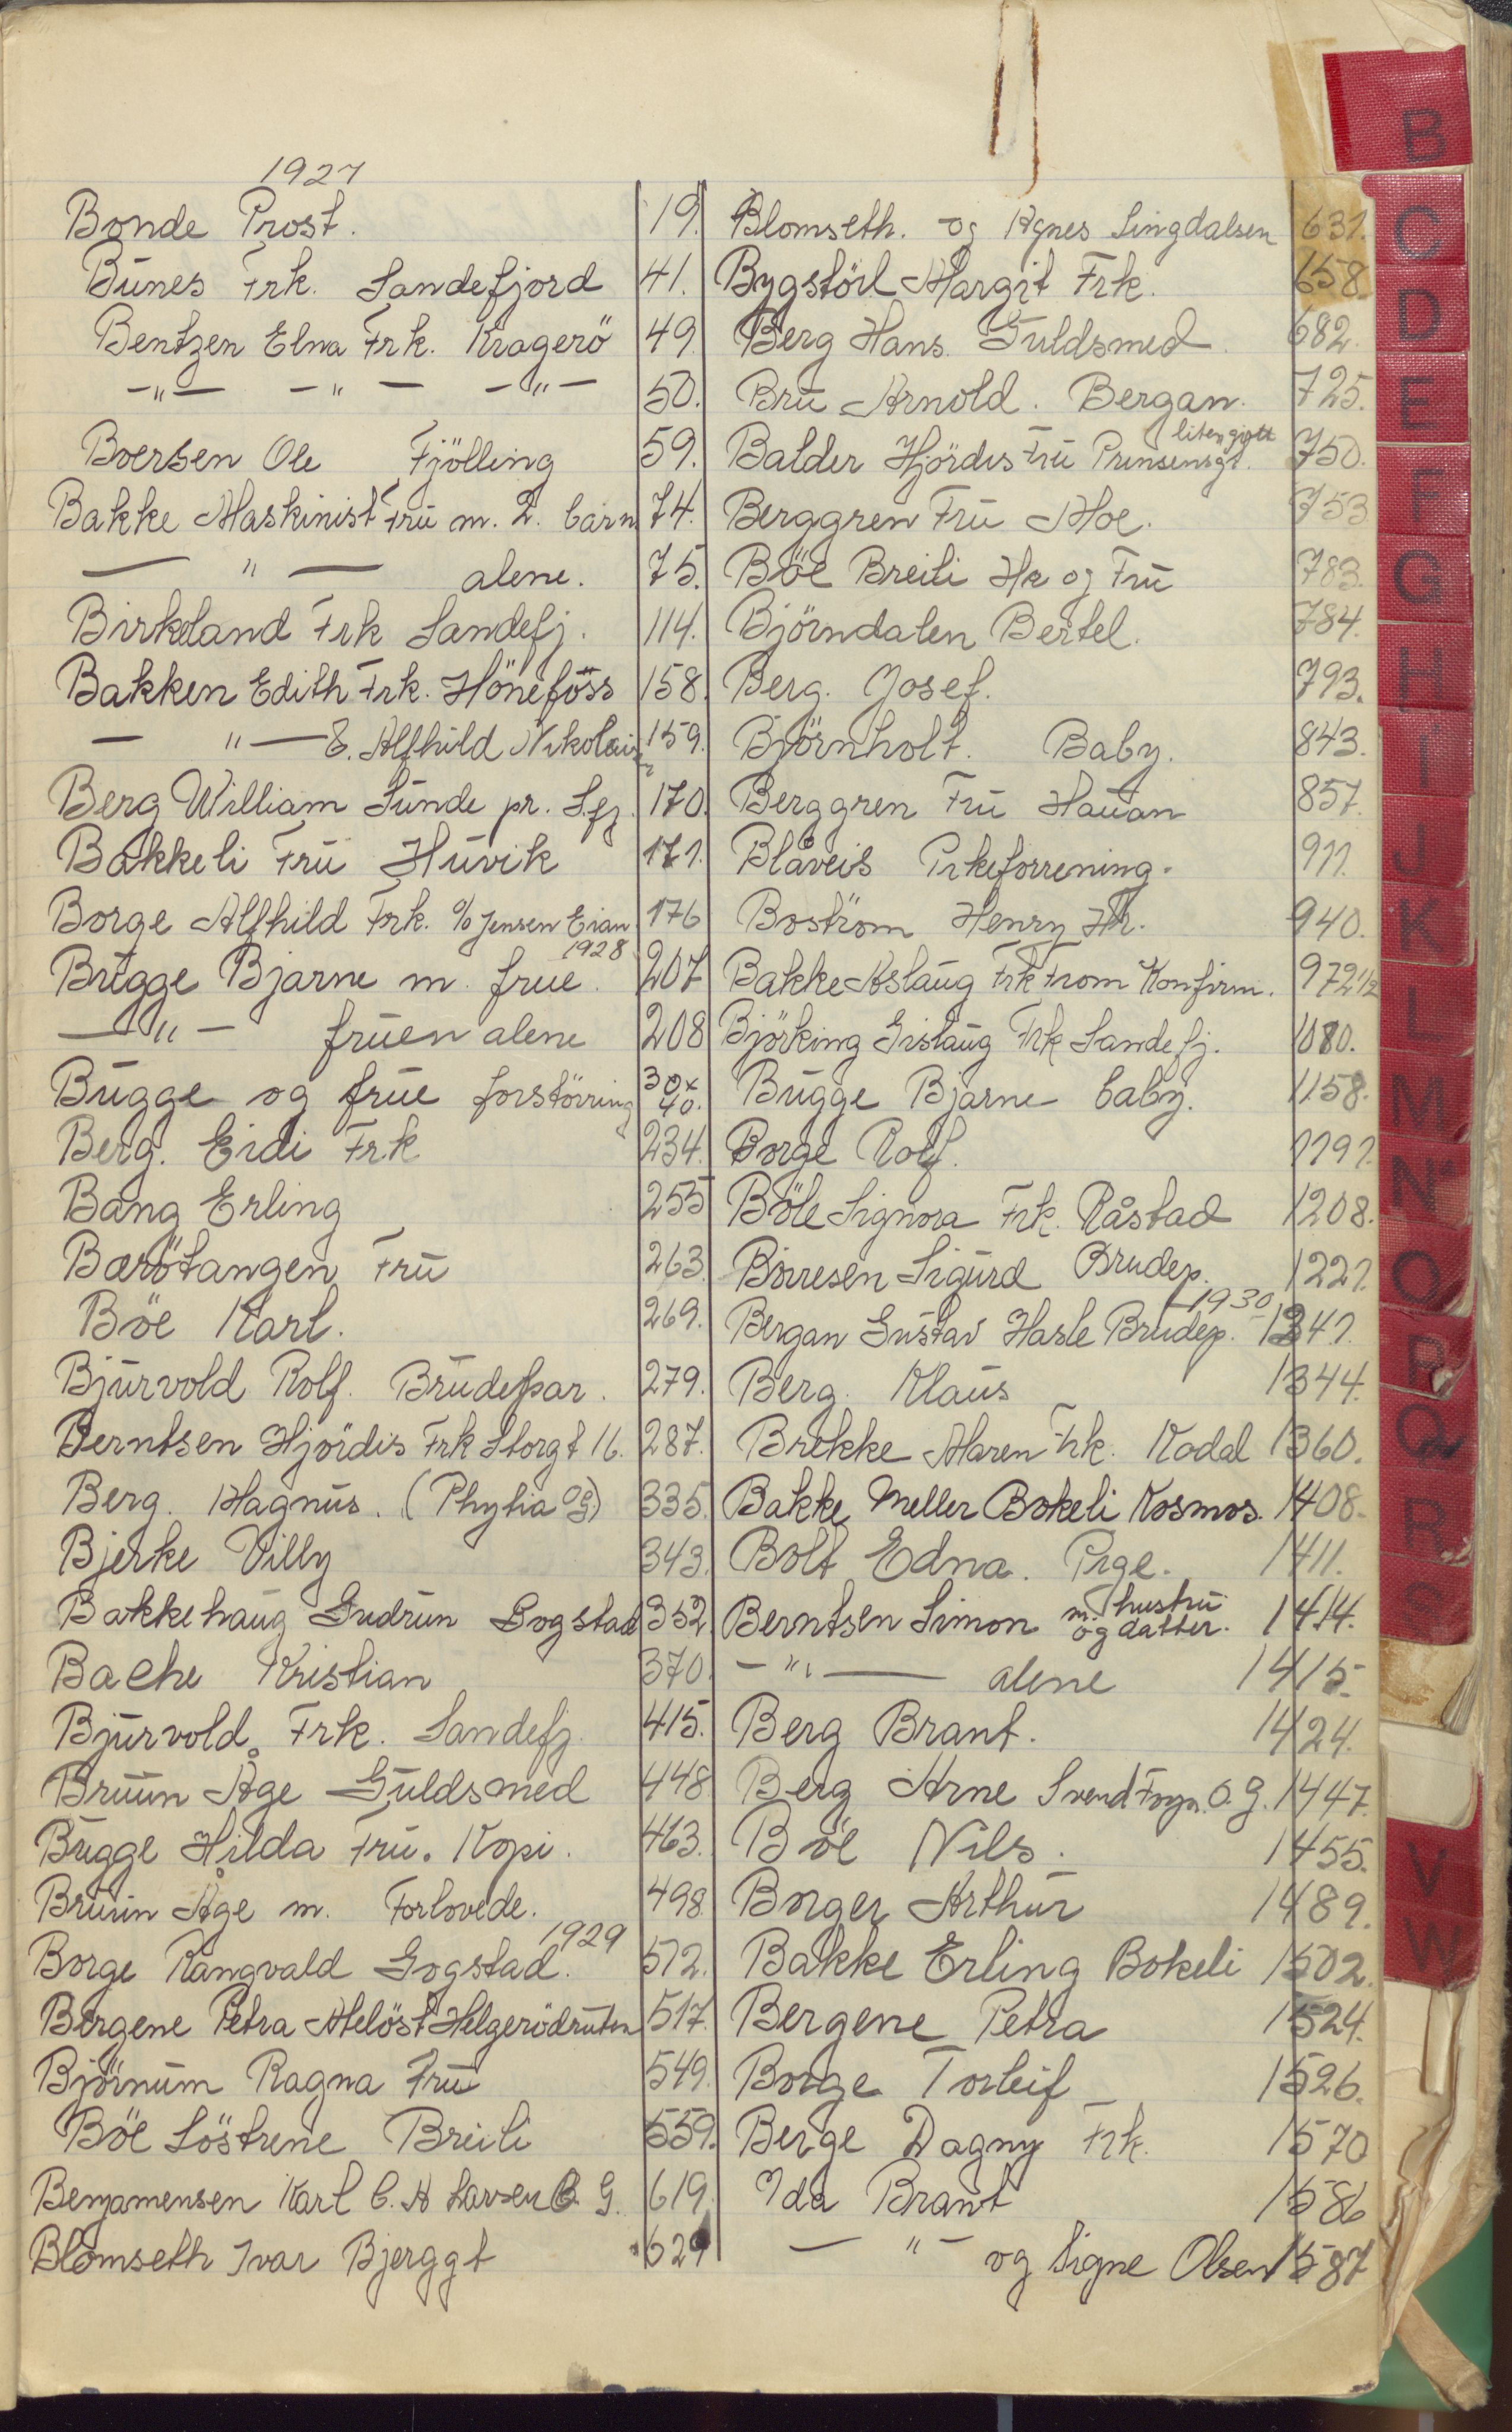 1927
Bonde Prost. 19.
Bunes Frk. Sandefjord 41.
Bentzen Elna Frk. Kragerö 49
—"— —"— —"— 50.
Boersen Ole Fjölling 59.
Bakke Maskinist Fru m. 2. barn 74.
—"— alene. 75.
Birkeland Frk Sandefj. 114.
Bakken Edith Frk. Hönefoss 158.
—"— E. Alfhild Nikolai 159.
Berg William Sunde pr. S.fj. 170.
Bakkeli Fru Huvik 171.
Borge Alfhild Frk. c/o Jensen Eian 176
1928
Brügge Bjarne m. frue. 207
—"— fruen alene 208
Bugge og frue forstörring 30x40.
Berg. Eidi Frk 234.
Bang Erling 255
Barötangen Fru 263.
Böe Karl. 269.
Bjurvold Rolf. Brudepar. 279.
Berntsen Hjördis Frk Storgt 16. 287.
Berg. Magnus. (Phytia og) 335.
Bjerke Villy 343.
Bakkehaug Gudrun Gogstad 352
Bache Kristian 370.
Bjurvold. Frk. Sandefj. 415.
Bruun Åge Guldsmed 448
Bugge Hilda Fru. Kopi. 463.
Bruun Åge m. Forlovede. 498
1929
Borge Rangvald Gogstad. 512.
Bergene Petra Melöst Helgerödruten 517.
Björnum Ragna Fru 549.
Böe Söstrene Breili 559.
Benjamensen Karl C. A Larsen G. 619.
Blomseth Ivar Bjerggt 629
Blomseth. og Agnes Lingdalsen 631.
Bygstöil Margit Frk. 658.
Berg Hans. Guldsmed. 682.
Bru Arnold. Bergan. 725.
Balder Hjördis Fru Prinsensgt. liten gjutt 750.
Berggren Fru Moe. 753
Böe Breili Hr og Fru 783.
Björndalen Bertel. 784.
Berg. Josef. 793.
Björnholt. Baby. 843.
Berggren Fru Hauan 857.
Blåveis Pikeforrening. 911.
Boström Henry Hr. 940.
Bakke Aslaug Frk From Konfirm. 972 1/2
Björking Gislaug Frk Sandefj. 1080.
Bugge Bjarne baby. 1158.
Borge Rolf. 1191.
Böle Signora Frk. Råstad 1208.
Börresen Sigurd Brudep. 1221.
1930
Bergan Gustav Hasle Brudep. 1341.
Berg. Klaus 1344.
Brekke Maren Frk. Kodal 1360.
Bakke Meller Bokeli Kosmos. 1408.
Bolt Edna. Pige. 1411.
Berntsen Simon m. hustru og datter. 1414.
—"— alene 1415.
Berg Brant. 1424.
Berg Arne Svend Foyn. O. G. 1447.
Böe Nils. 1455.
Borger Arthur 1489.
Bakke Erling Bokeli 1502.
Bergene Petra 1524.
Borge Torleif 1526.
Berge Dagny Frk. 1570
Ida Brant 1586
—"— og Signe Olsen 1587
B
C
D
E
F
G
H
I
J
K
L
M
N
O
P
Q
R
S
V
W